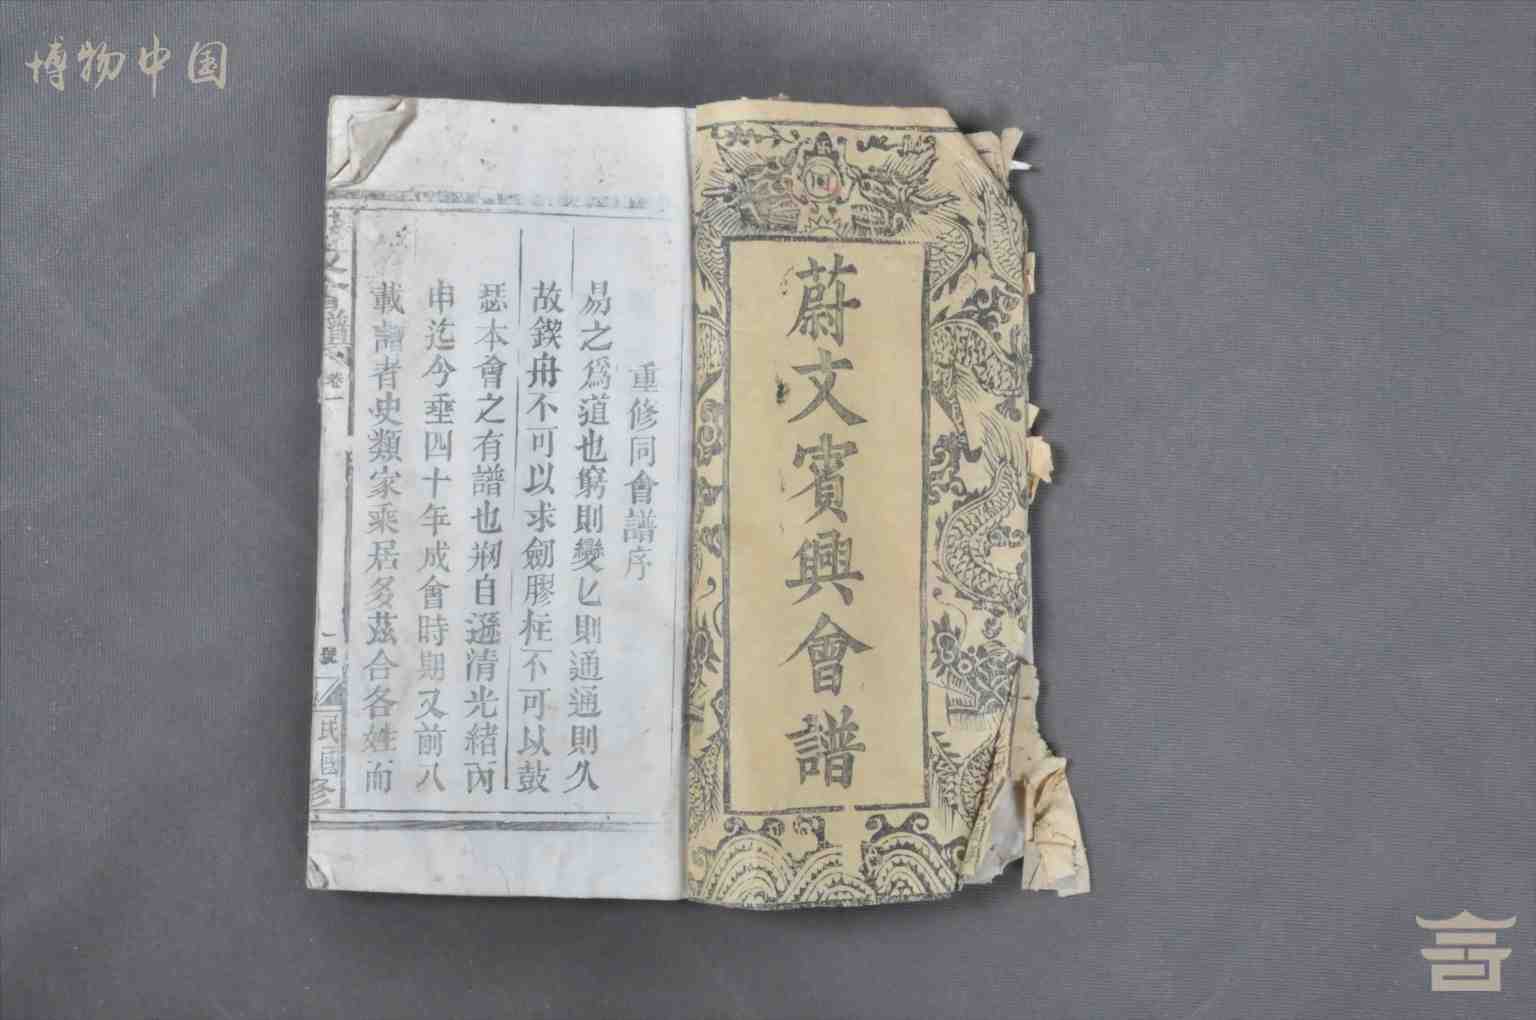 博物中国
蔚文賓興會譜
重修同會譜序
易之爲道也窮則變匕則通通則久
故鍥舟不可以求劍膠柱不可以鼓
瑟本會之有譜也剏自遜清光緒丙
申迄今垂四十年成會時期又前八
載譜者史類家乘居多茲合各姓而
文會譜
卷一
一號
民國
修